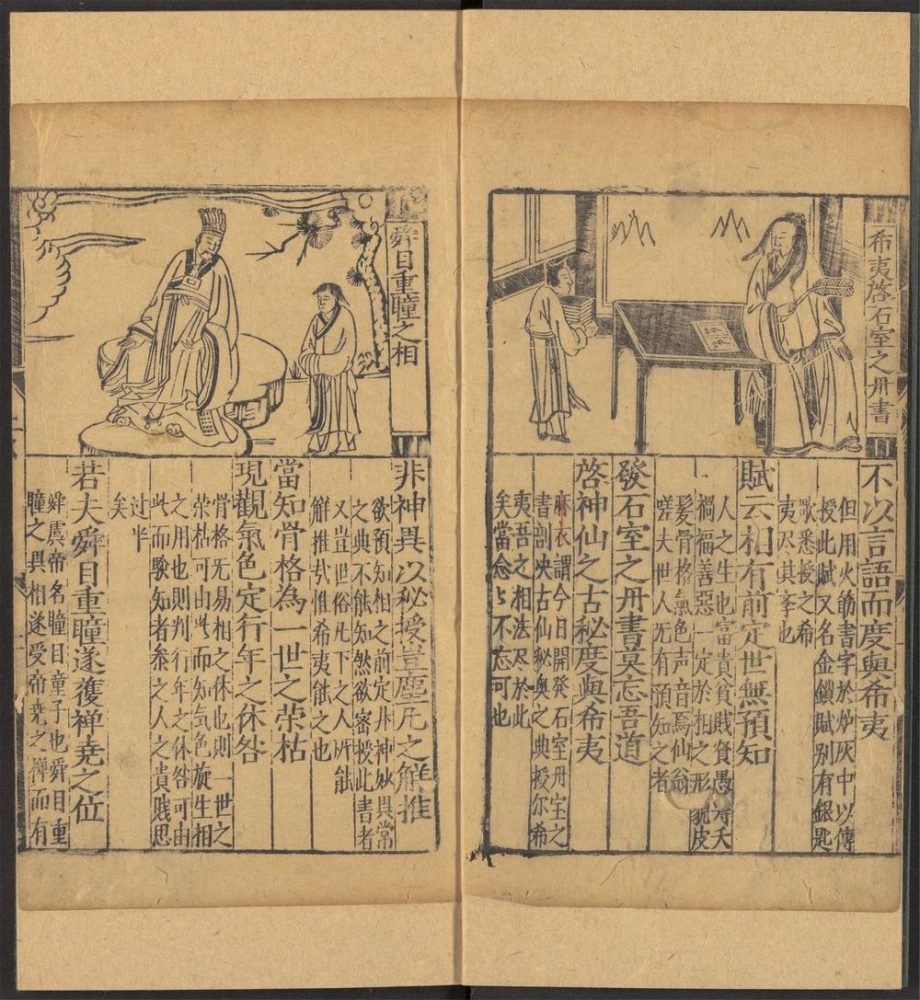 希夷啓石室之丹書
不以言語而度與希夷
但用火筯書字於炉灰中以傳
授此賦又名金鎖賦别有銀匙
歌悉授之希
夷尽其李也
賦云相有前定世無預知
人之生也富貴貧賤賢愚壽夭
禍福善惡一定於相之形皃皮
髪骨格氣色声音焉仙翁
嗟夫世人无有預知之者
發石室之丹書莫忘吾道
啓神仙之古秘度與希夷
麻衣謂今日開発石室丹宝之
書剖决古仙秘奥之典授尔希
夷吾之相法尽於此
矣當念〻不忘可也
舜目重瞳之相
非神異以秘授豈塵凡之解推
欲預知相之前定非神妙異常
之典不能知然欲密授此書者
又豈世俗凡下之人所能
解推㦲惟希夷能之也
當知骨格為一世之荣枯
現觀氣色定行年之休咎
骨格无易相之体也則一世之
荣枯可由此而知気色旋生相
之用也則判行年之休咎可由
此而驗知者叅之人之貴賤思
过半
矣
若夫舜目重瞳遂獲禅堯之位
舜虞帝名瞳目童子也舜目重
瞳之異相遂受帝堯之禅而有